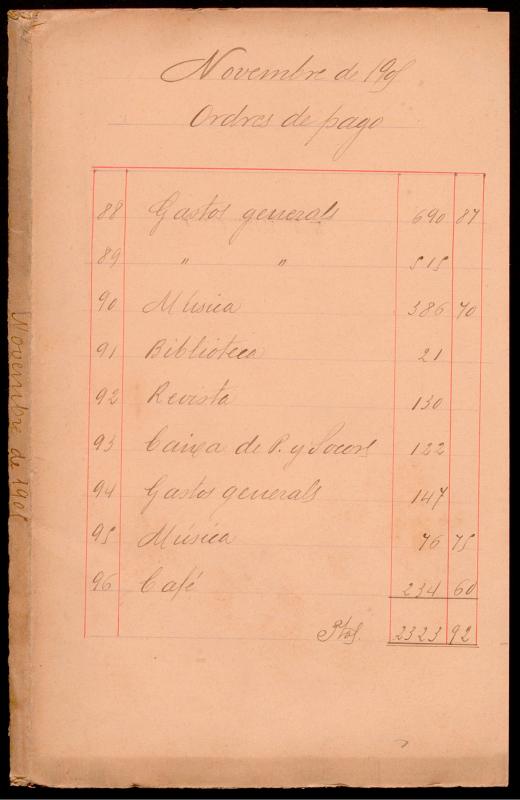 Novembre de 1905
Ordres de pago
88 Gastos generals 690 87
89 " " 515
90 Música 386 70
91 Biblioteca 21
92 Revista 130
93 Caixa de P. y Socors 122
94 Gastos generals 147
95 Música 76 75
96 Café 234 60
Ptas. 2323 92
Novembre de 1905